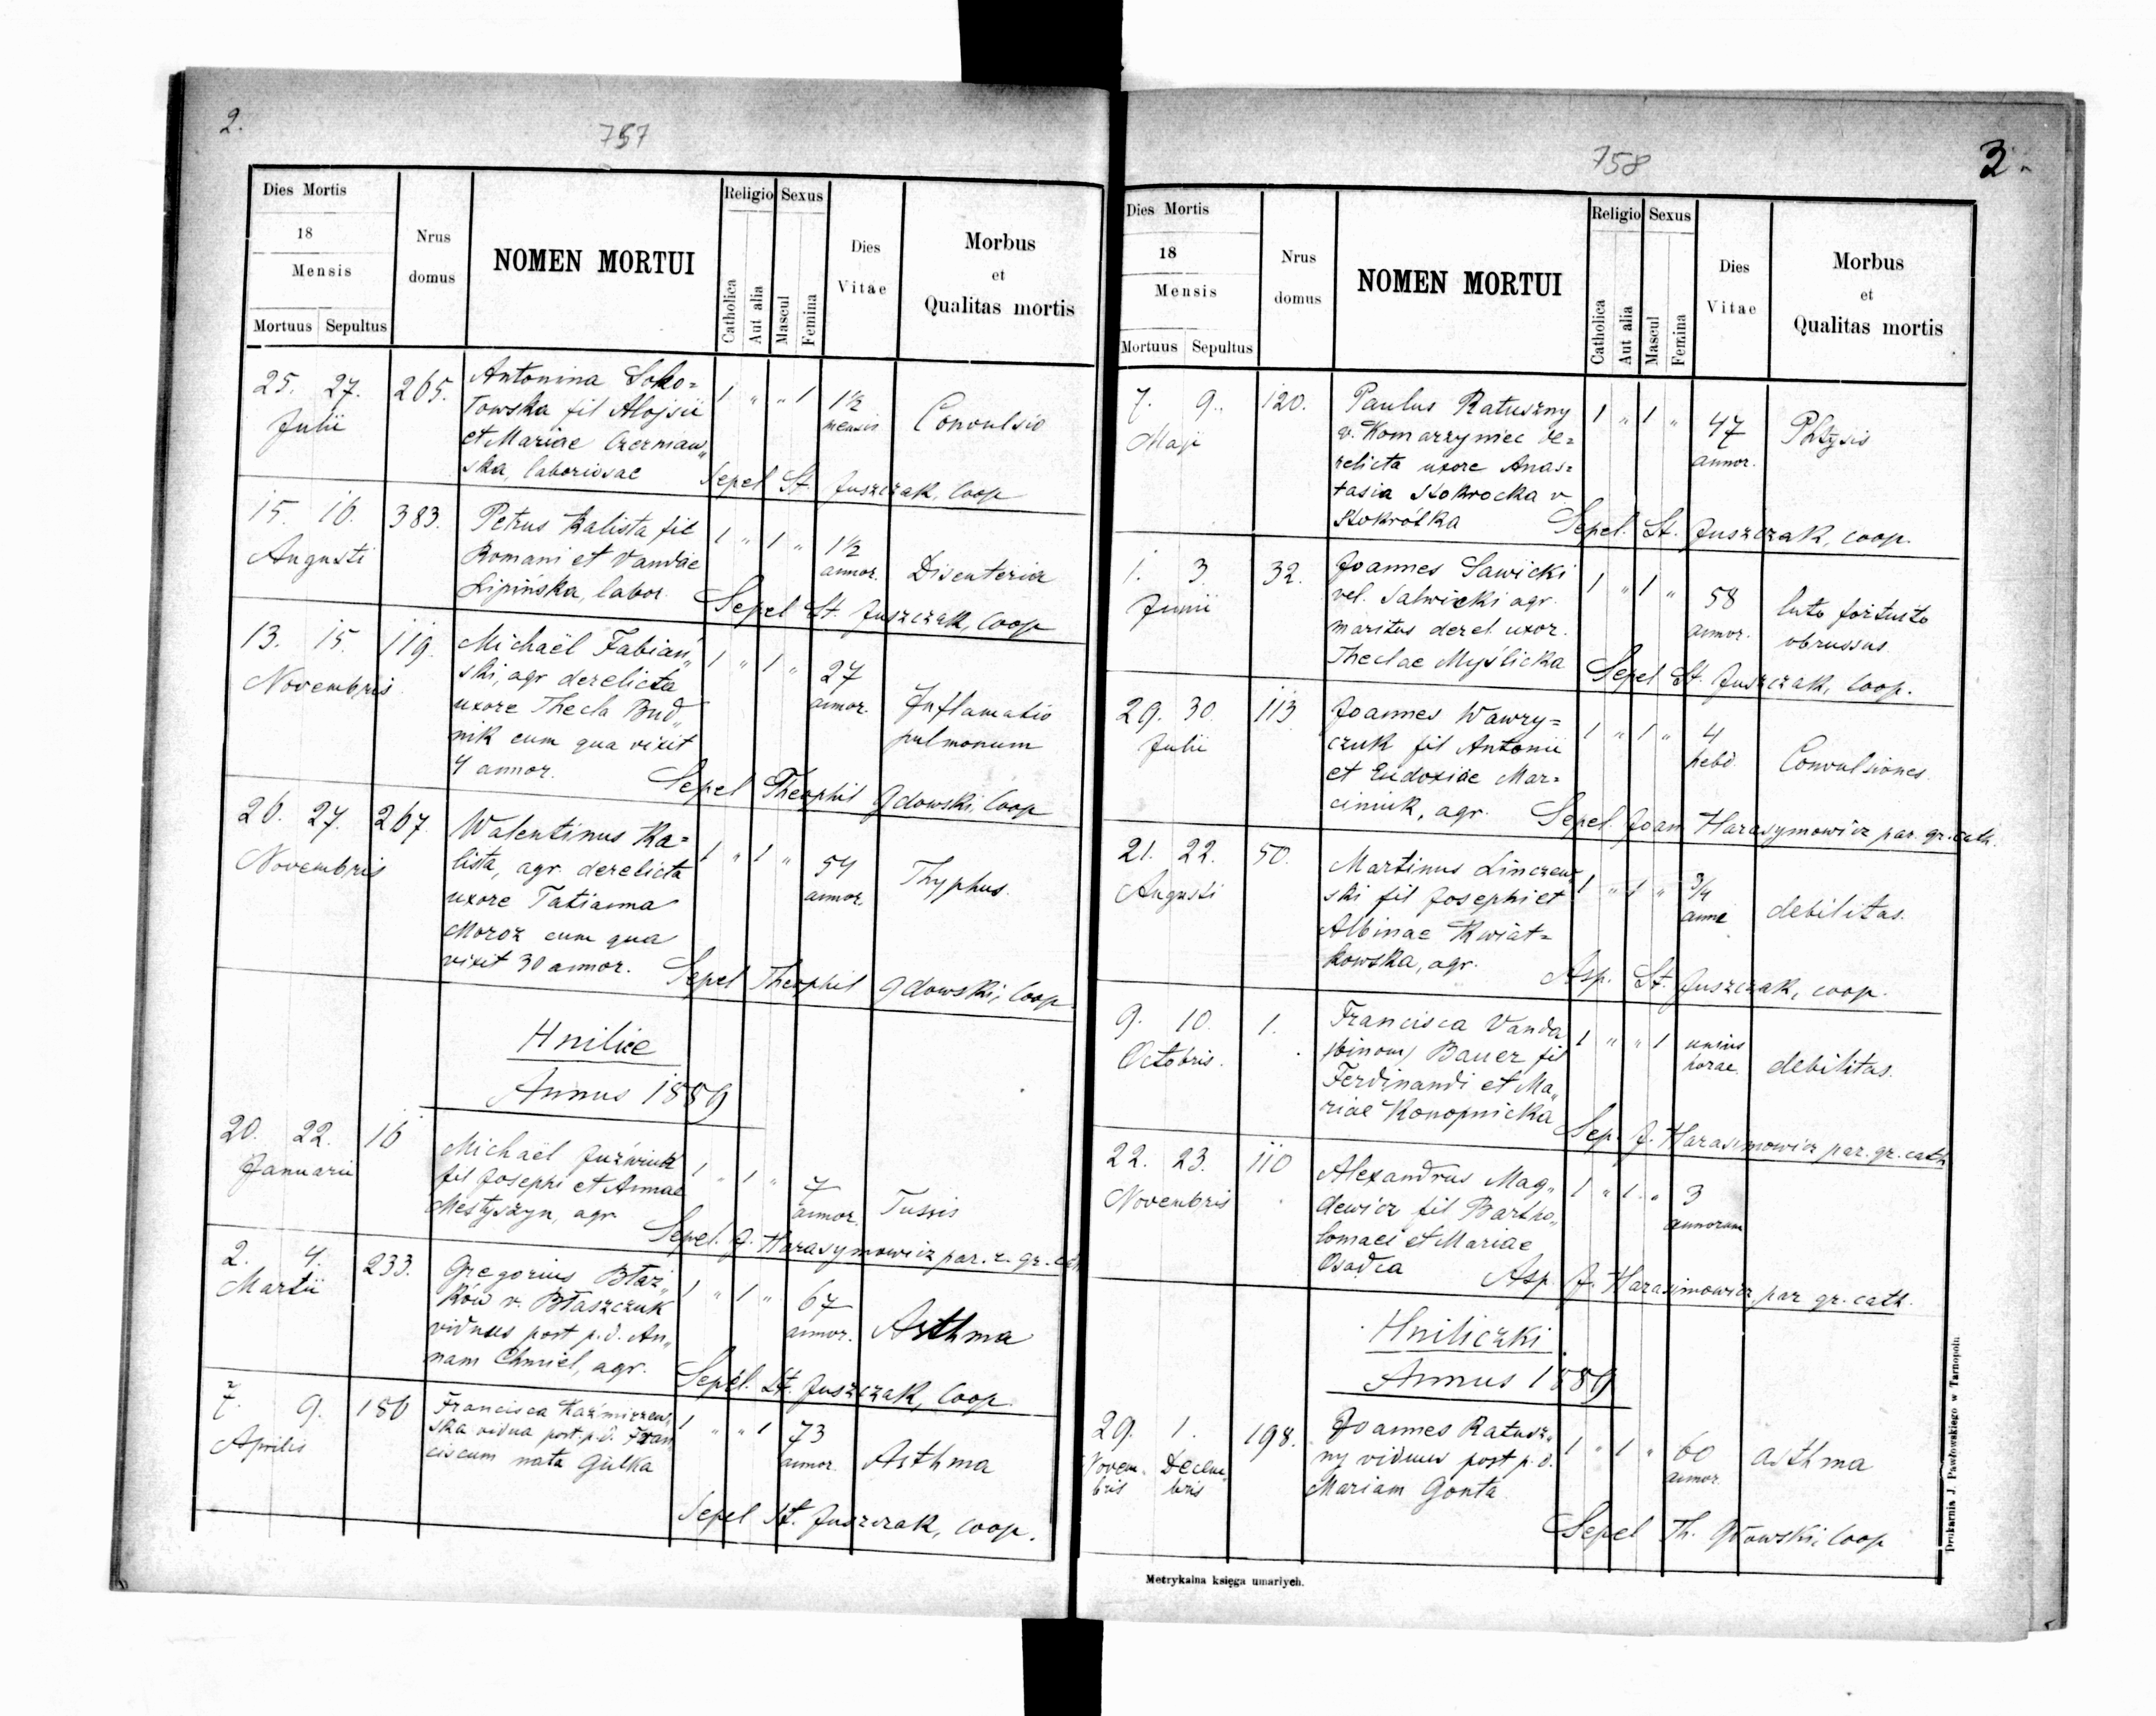 2.
757
Dies Mortis
18
Mensis
Mortuus Sepultus
Nrus
domus
NOMEN MORTUI
Religio
Catholica
Aut alia
Sexus
Mascul
Femina
Dies
Vitae
Morbus
et
Qualitas mortis
25. 27. 265. Antonina Soko=
Julii
łowska fil Alojsii
et Mariae Czerniaw„
ska, laboriosae
1 „ „ 1 1½
mensis
Convulsio
Sepel St. Juszczak, Coop
15. 16. 383. Petrus Kalista fil
Augusti
Romani et Vandae
Lipińska, labor.
1 „ 1 „ 1½
annor.
Disenteria
Sepel St. Juszczak, Coop
13. 15. 119. Michaël Fabiań„
Novembris
ski, agr derelicta
uxore Thecla Bud„
nik cum qua vixit
4 annor.
1 „ 1 „ 27
annor.
Inflamatio
pulmonum
Sepel Theophil Gdowski, Coop
26. 27. 267. Walentinus Ka=
Novembris
lista, agr. derelicta
uxore Tatianna
Moroz cum qua
vixit 30 annor.
1 „ 1 „ 54
annor.
Thyphus.
Sepel Theophil Gdowski, Coop
Hnilice
Annus 1889
20. 22. 16 Michaël Juźwiuk
Januarii
fil Josephi et Annae
Mestyszyn, agr
1 „ 1 „ 7
annor.
Tussis
Sepel. J. Harasymowicz par. r. gr. cath
2. 4. 233. Gregorius Błaż„
Martii
ków v. Błaszczuk
viduus post p. d. An„
nam Chmiel, agr.
1 „ 1 „ 67
annor.
Asthma
Sepel. St. Juszczak, Coop.
7. 9. 186 Francisca Kaźmirzew„
Aprilis
ska vidua post. p. d. Fran
ciscum nata Gulka
1 „ „ 1 73
annor.
Asthma
Sepel St. Juszczak, Coop.
758
3.
Dies Mortis
18
Mensis
Mortuus Sepultus
Nrus
domus
NOMEN MORTUI
Religio
Catholica
Aut alia
Sexus
Mascul
Femina
Dies
Vitae
Morbus
et
Qualitas mortis
7. 9. 120. Paulus Ratuszny
Maji
v. Komarzyniec de=
relicta uxore Anas=
tasia Stokrocka v.
Stokrótka
1 „ 1 „ 47
annor.
Phtysis
Sepel. St. Juszczak, coop.
1. 3. 32. Joannes Sawicki
Junii
vel. Salwicki agr.
maritus derel. uxor.
Theclae Myślicka
1 „ 1 „ 58
annor.
luto fortuito
obrussus
Sepel St. Juszczak, Coop.
29. 30. 113 Joannes Wawry=
Julii
czuk fil Antonii
et Eudoxiae Mar=
ciniuk, agr.
1 „ 1 „ 4
hebd.
Convulsiones.
Sepel. Joan Harasymowicz par. gr. cath.
21. 22. 50. Martinus Linczew„
Augusti
ski fil Josephi et
Albinae Kwiat=
kowska, agr.
1 „ 1 „ ¾
anni
debilitas.
Asp. St. Juszczak, coop.
9. 10. 1. Francisca Vanda
Octobris.
(binom) Bauer fil
Ferdinandi et Ma„
riae Konopnicka
1 „ „ 1 unius
horae.
debilitas.
Sep. J. Harasimowicz par. gr. cath
22. 23. 110 Alexandrus Mag„
Novembris
dewicz fil Bartho„
lomaei et Mariae
Osadca
1 „ 1 „ 3
annorum
Asp J. Harasimowicz par gr. cath.
Hniliczki
Annus 1889
29. 1. 198. Joannes Ratusz„
Novem- Decem„
bris bris
ny viduus post p. d.
Mariam Gonta
1 „ 1 „ 60
annor.
asthma
Sepel Th. Gdowski, Coop
Metrykalna księga umarłych.
Drukarnia J. Pawłowskiego w Tarnopolu